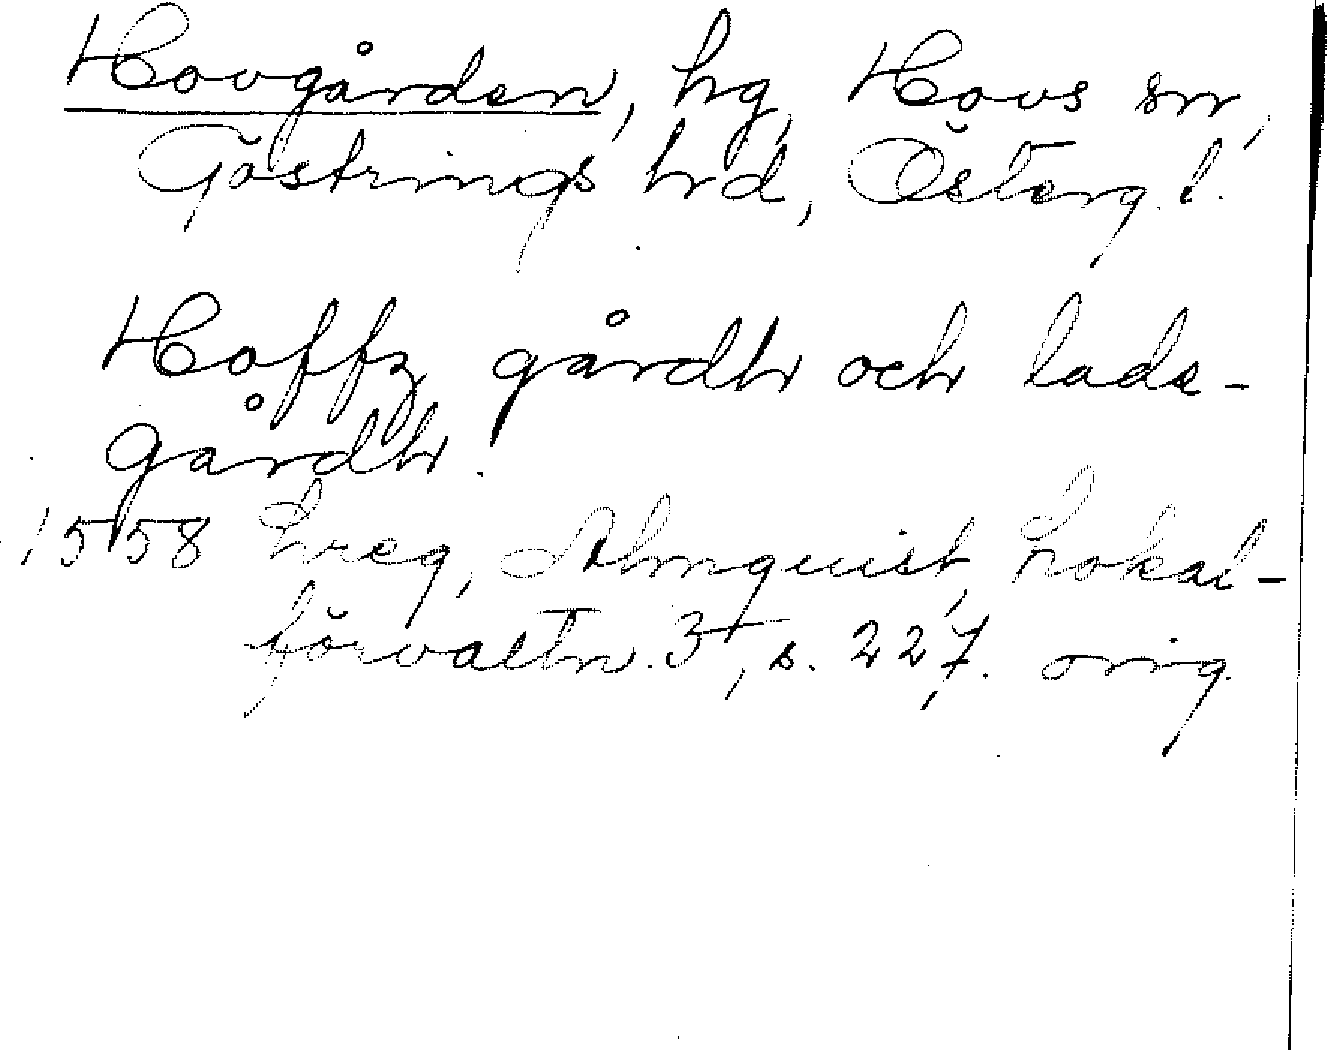 Hovgården, hg, Hovs sn,
Göstrings hrd, Österg. l.
Hoffz gårdh och lade-
gårdh.
1558 Freg, Almquist, Lokal-
förvaltn. 3, s. 227. orig.